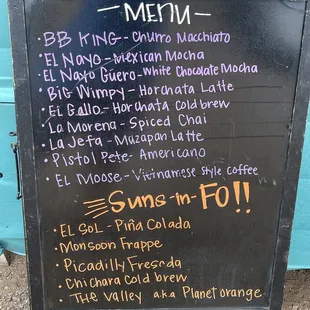 -MENU-
• BB KING - Churro Macchiato
• EL Nayo - Mexican Mocha
• EL Nayo Güero - White Chocolate Mocha
• Big Wimpy - Horchata Latte
• EL Gallo - Horchata Cold brew
• La Morena - Spiced Chai
• La Jefa - Mazapan Latte
• Pistol Pete - Americano
• EL Moose - Vietnamese Style coffee
Suns-in-FO!!
• EL SOL - Piña Colada
• Monsoon Frappe
• Picadilly Fresada
• Chichara Cold brew
• The Valley a.k.a Planet orange